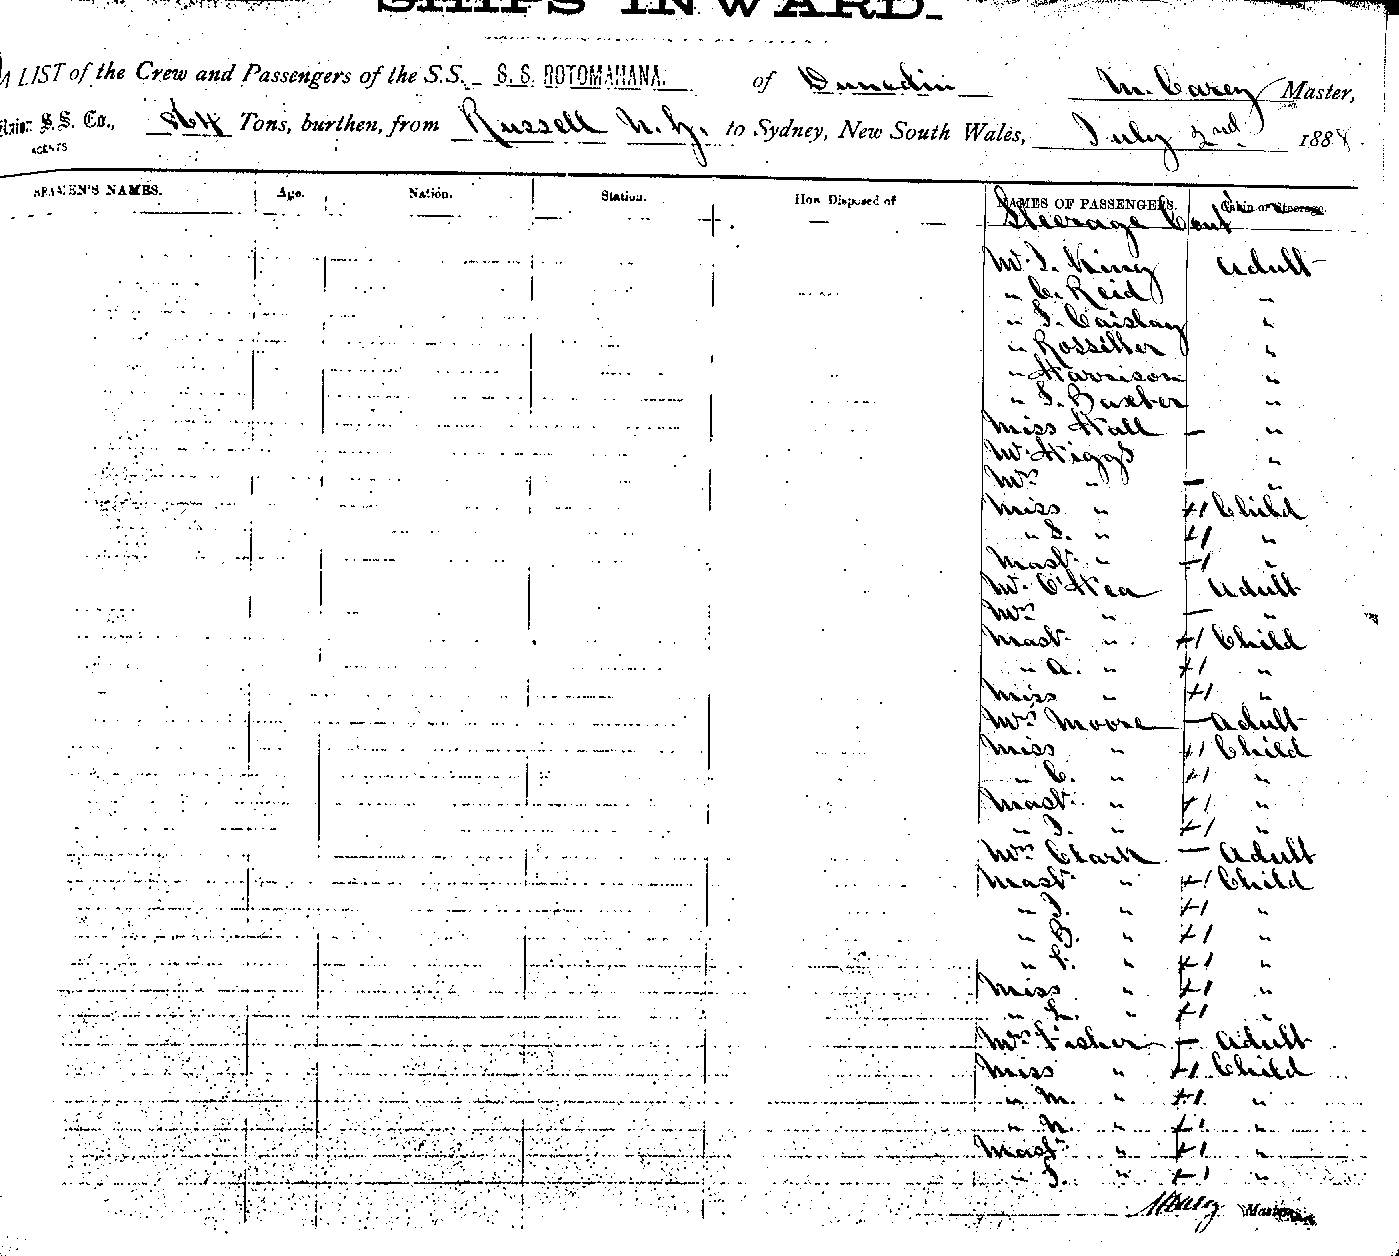 SHIPS INWARD.
A LIST of the Crew and Passengers of the S.S. S. S. ROTOMAHANA. of Dunedin M. Carey Master,
S.S. Co., 864 Tons, burthen, from Russell N. Z. to Sydney, New South Wales, July 2nd 1888
AGENTS
SEAMEN'S NAMES. Age. Nation. Station. How Disposed of NAMES OF PASSENGERS. Cabin or Steerage.
Steerage Cont
Mr. J. King Adult
" C. Reid "
" J. Caisley "
" Rossiter "
" Harrison "
" J. Baxter "
Miss Hall — "
Mr Higgs "
Mrs " — "
Miss " +1 Child
" S. " +1 "
Mastr " +1 "
Mr. O'Hea Adult
Mrs " — "
Mastr " +1 Child
" A. " +1 "
Miss " +1 "
Mrs Moore — Adult
Miss " +1 Child
" C. " +1 "
Mastr " +1 "
" J. " +1 "
Mrs Clark — Adult
Mastr " +1 Child
" J. " +1 "
" B. " +1 "
" " +1 "
Miss " +1 "
" L. " +1 "
Mrs Fisher — Adult
Miss " +1 Child
" M. " +1 "
" N. " +1 "
Mastr " +1 "
" J. " +1 "
MCarey Master